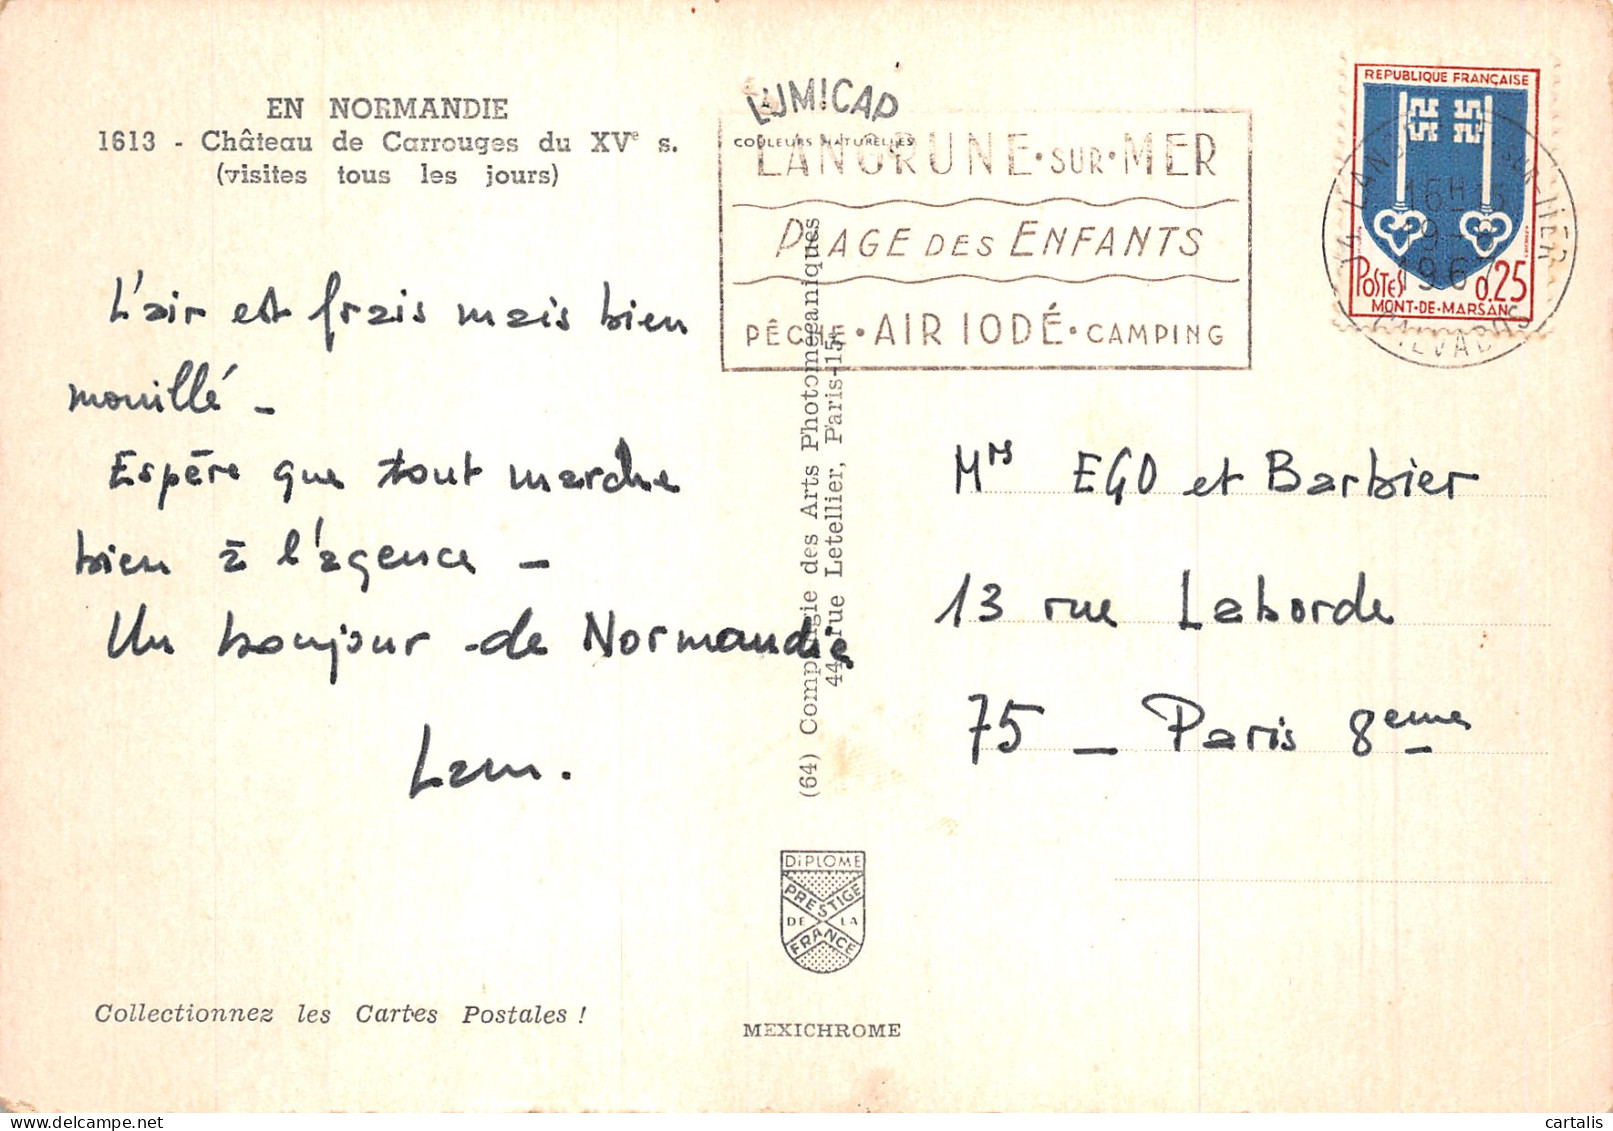 EN NORMANDIE
1613 - Château de Carrouges du XVe s.
(visites tous les jours)
L'air est frais mais bien
mouillé -
Espère que tout marche
bien à l'agence -
Un bonjour de Normandie
LUMICAP
COULEURS NATURELLES
LANGRUNE·SUR·MER
PLAGE DES ENFANTS
PÊCHE·AIR IODÉ·CAMPING
REPUBLIQUE FRANÇAISE
POSTES 0,25
MONT-DE-MARSAN
16H15
19-8
CALVADOS
(64) Compagnie des Arts Photomécaniques
44, rue Letellier, Paris-15e
Mrs EGO et Barbier
13 rue Laborde
75 - Paris 8eme
DIPLOME
PRESTIGE
DE LA
FRANCE
Collectionnez les Cartes Postales !
MEXICHROME
cartalis